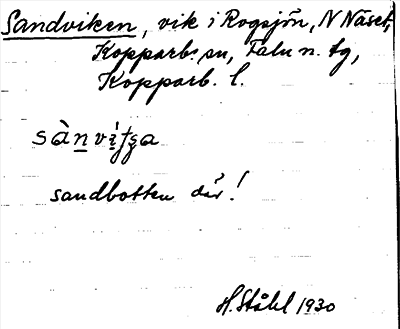 Sandviken, vik i Rogsjön, N Näset,
Kopparb. sn, Falu n. tg,
Kopparb. l.
sandbotten där!
H. Ståhl 1930